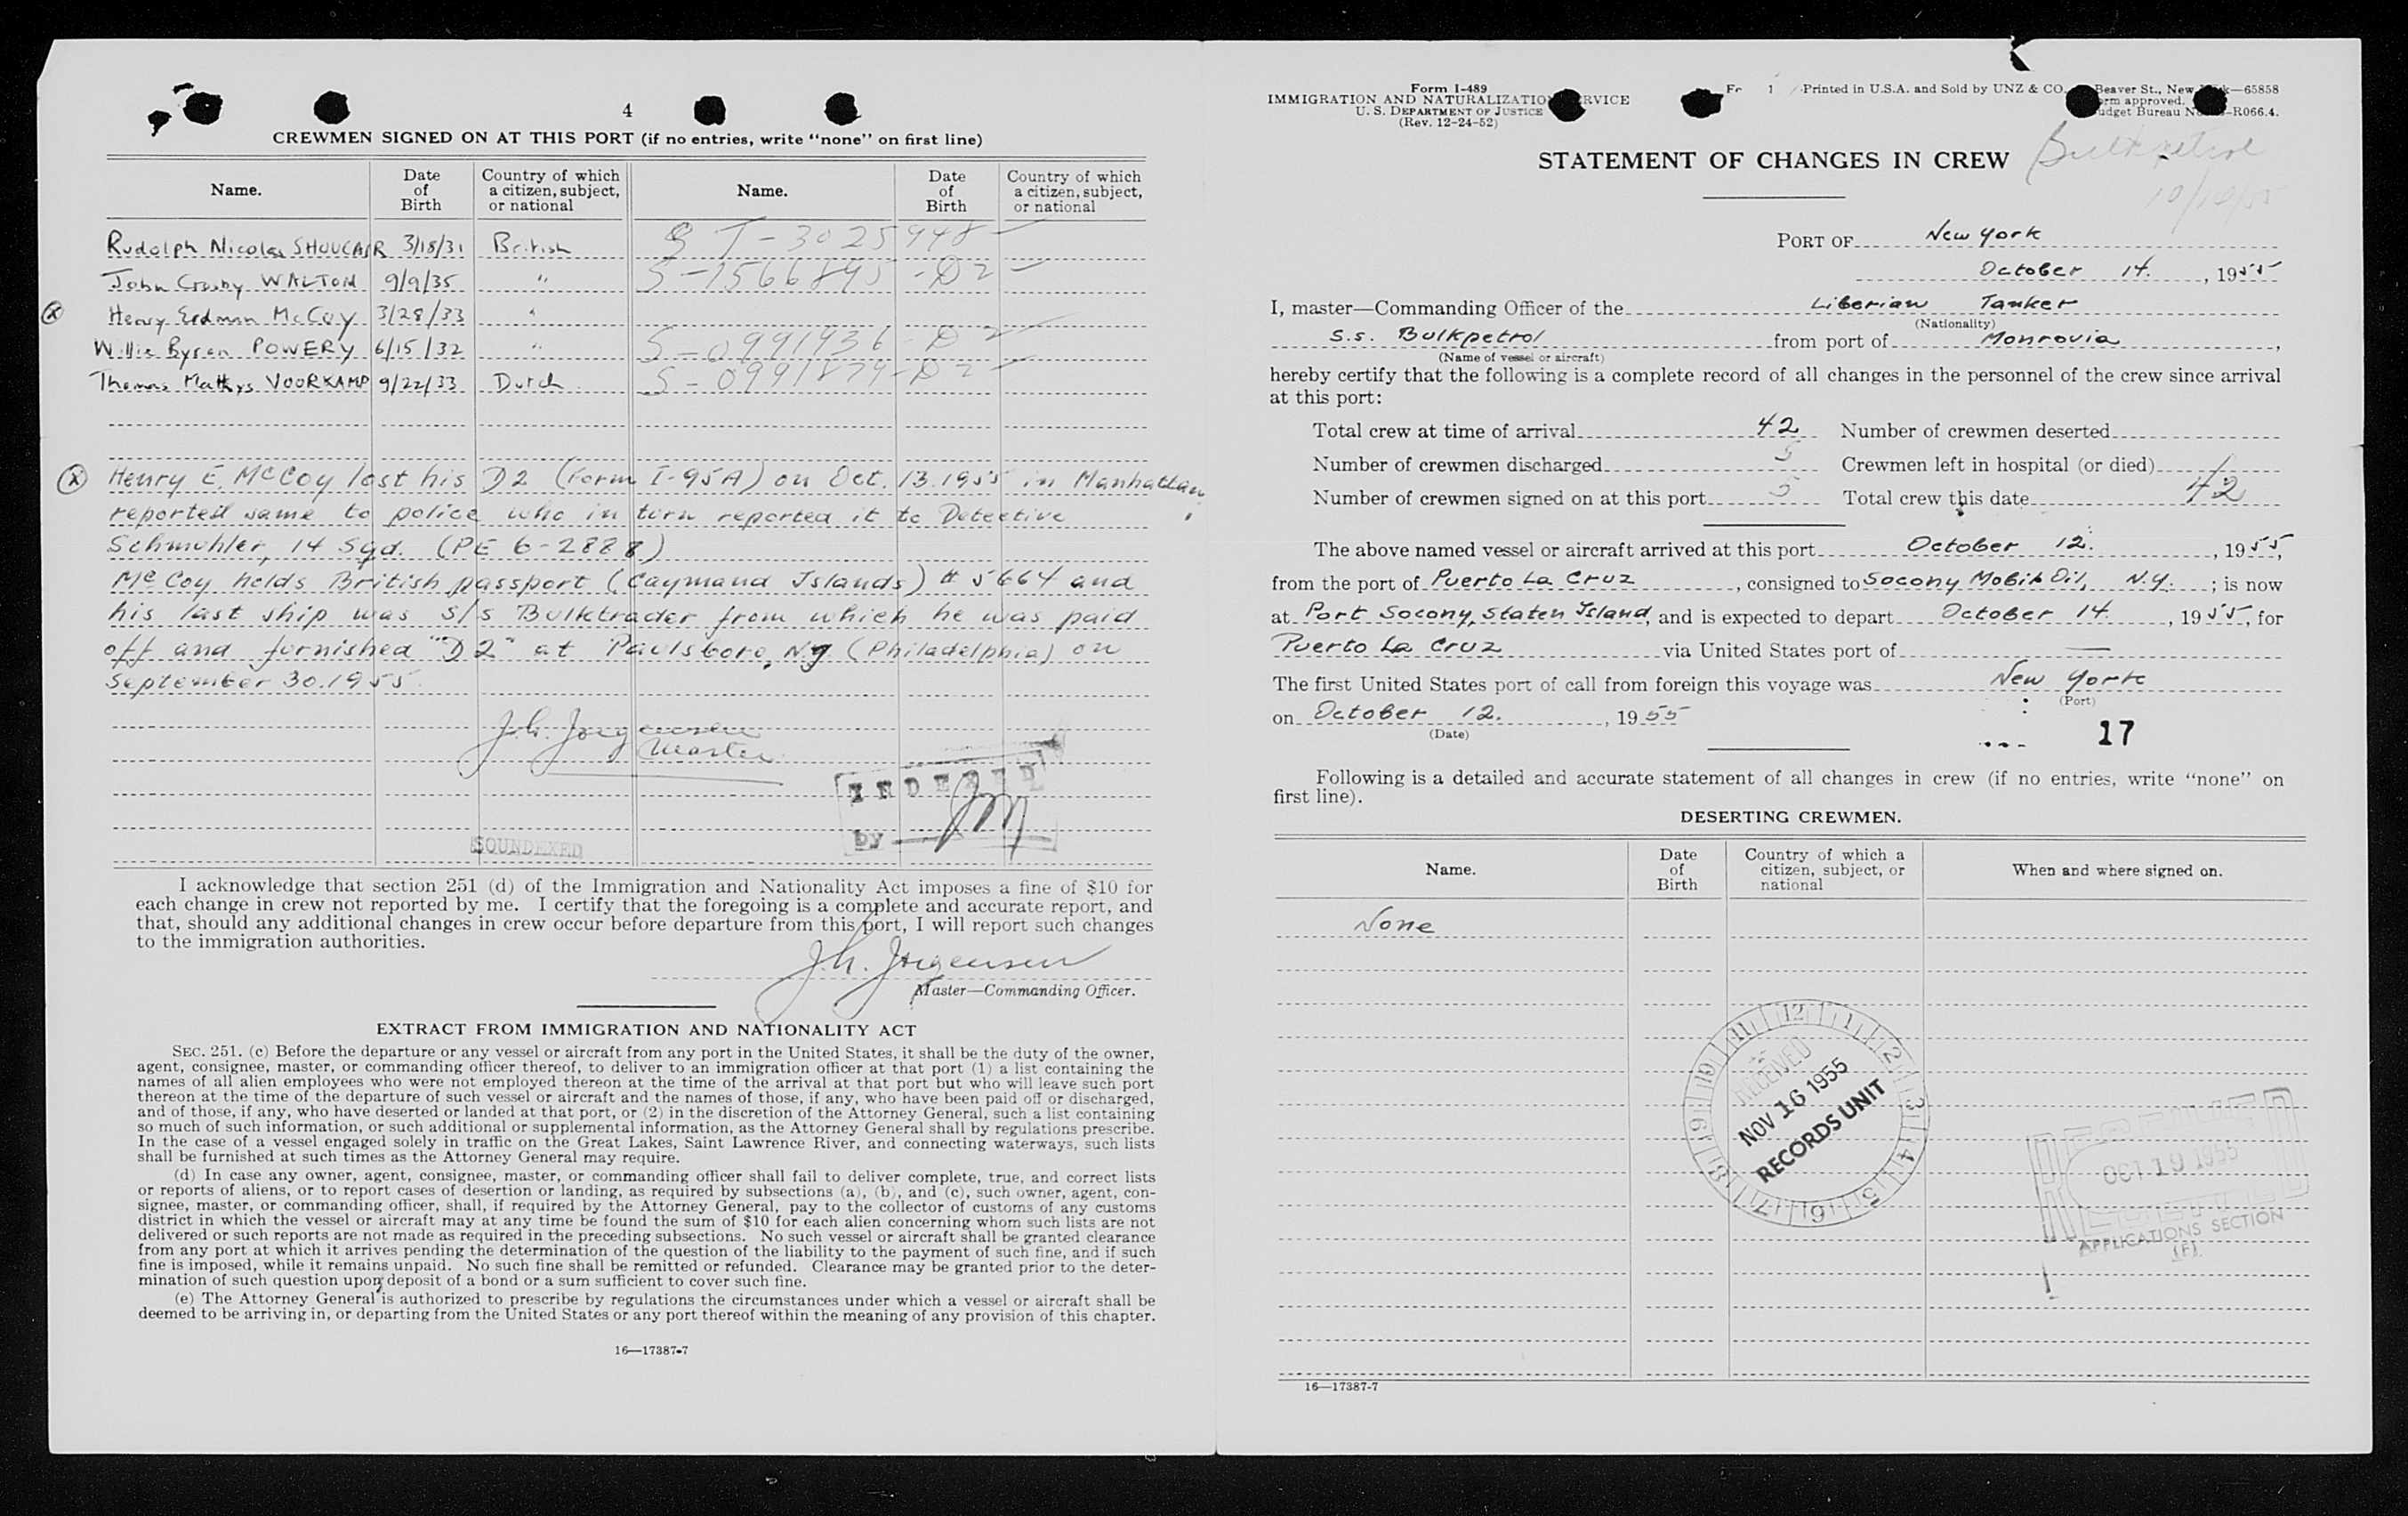 4
CREWMEN SIGNED ON AT THIS PORT (if no entries, write "none" on first line)
Name. Date of Birth Country of which a citizen, subject, or national Name. Date of Birth Country of which a citizen, subject, or national
Rudolph Nicolas SHOUCAIR 3/18/31 British T-3025948
John Crosby WALTON 9/9/35 " S-1566845-D2
(x) Henry Erdman McCoy 3/28/33 "
Willie Byren POWERY 6/15/32 " S-0991936-D2
Thomas Matthys VOORKAMP 9/22/33 Dutch S-0991879-D2
(x) Henry E. McCoy lost his D2 (Form I-95A) on Oct. 13.1955 in Manhattan,
reported same to police who in turn reported it to Detective
Schmohler, 14 Sqd. (PE 6-2888)
McCoy holds British passport (Caymand Islands) # 5664 and
his last ship was S/S Bulktrader from which he was paid
off and furnished "D2" at Paulsboro, NJ (Philadelphia) on
September 30.1955.
J.h. Jorgensen
Master
INDEXED
by JM
SOUNDEXED
I acknowledge that section 251 (d) of the Immigration and Nationality Act imposes a fine of $10 for
each change in crew not reported by me. I certify that the foregoing is a complete and accurate report, and
that, should any additional changes in crew occur before departure from this port, I will report such changes
to the immigration authorities.
J.h. Jorgensen
Master—Commanding Officer.
EXTRACT FROM IMMIGRATION AND NATIONALITY ACT
SEC. 251. (c) Before the departure or any vessel or aircraft from any port in the United States, it shall be the duty of the owner,
agent, consignee, master, or commanding officer thereof, to deliver to an immigration officer at that port (1) a list containing the
names of all alien employees who were not employed thereon at the time of the arrival at that port but who will leave such port
thereon at the time of the departure of such vessel or aircraft and the names of those, if any, who have been paid off or discharged,
and of those, if any, who have deserted or landed at that port, or (2) in the discretion of the Attorney General, such a list containing
so much of such information, or such additional or supplemental information, as the Attorney General shall by regulations prescribe.
In the case of a vessel engaged solely in traffic on the Great Lakes, Saint Lawrence River, and connecting waterways, such lists
shall be furnished at such times as the Attorney General may require.
(d) In case any owner, agent, consignee, master, or commanding officer shall fail to deliver complete, true, and correct lists
or reports of aliens, or to report cases of desertion or landing, as required by subsections (a), (b), and (c), such owner, agent, con-
signee, master, or commanding officer, shall, if required by the Attorney General, pay to the collector of customs of any customs
district in which the vessel or aircraft may at any time be found the sum of $10 for each alien concerning whom such lists are not
delivered or such reports are not made as required in the preceding subsections. No such vessel or aircraft shall be granted clearance
from any port at which it arrives pending the determination of the question of the liability to the payment of such fine, and if such
fine is imposed, while it remains unpaid. No such fine shall be remitted or refunded. Clearance may be granted prior to the deter-
mination of such question upon deposit of a bond or a sum sufficient to cover such fine.
(e) The Attorney General is authorized to prescribe by regulations the circumstances under which a vessel or aircraft shall be
deemed to be arriving in, or departing from the United States or any port thereof within the meaning of any provision of this chapter.
16—17387-7
Form I-489
IMMIGRATION AND NATURALIZATION SERVICE
U. S. DEPARTMENT OF JUSTICE
(Rev. 12-24-52)
Printed in U.S.A. and Sold by UNZ & CO. Beaver St., New —65858
approved.
Bureau —R066.4.
STATEMENT OF CHANGES IN CREW
Bulkpetrol
10/10/55
PORT OF New York
October 14. , 1955
I, master—Commanding Officer of the Liberian Tanker
(Nationality)
S.s. Bulkpetrol from port of Monrovia ,
(Name of vessel or aircraft)
hereby certify that the following is a complete record of all changes in the personnel of the crew since arrival
at this port:
Total crew at time of arrival 42 Number of crewmen deserted
Number of crewmen discharged 5 Crewmen left in hospital (or died)
Number of crewmen signed on at this port 5 Total crew this date 42
The above named vessel or aircraft arrived at this port October 12. , 1955,
from the port of Puerto La Cruz , consigned to Socony Mobil Oil, N.Y. ; is now
at Port Socony, Staten Island, and is expected to depart October 14. , 1955, for
Puerto La Cruz via United States port of —
The first United States port of call from foreign this voyage was New York
(Port)
on October 12. , 1955
(Date)
17
Following is a detailed and accurate statement of all changes in crew (if no entries, write "none" on
first line).
DESERTING CREWMEN.
Name. Date of Birth Country of which a citizen, subject, or national When and where signed on.
None
12 1 2 3 4 5 6 7 8 9 10 11
RECEIVED
NOV 16 1955
RECORDS UNIT
RECEIVED
OCT 19 1955
APPLICATIONS SECTION
(F)
16—17387-7